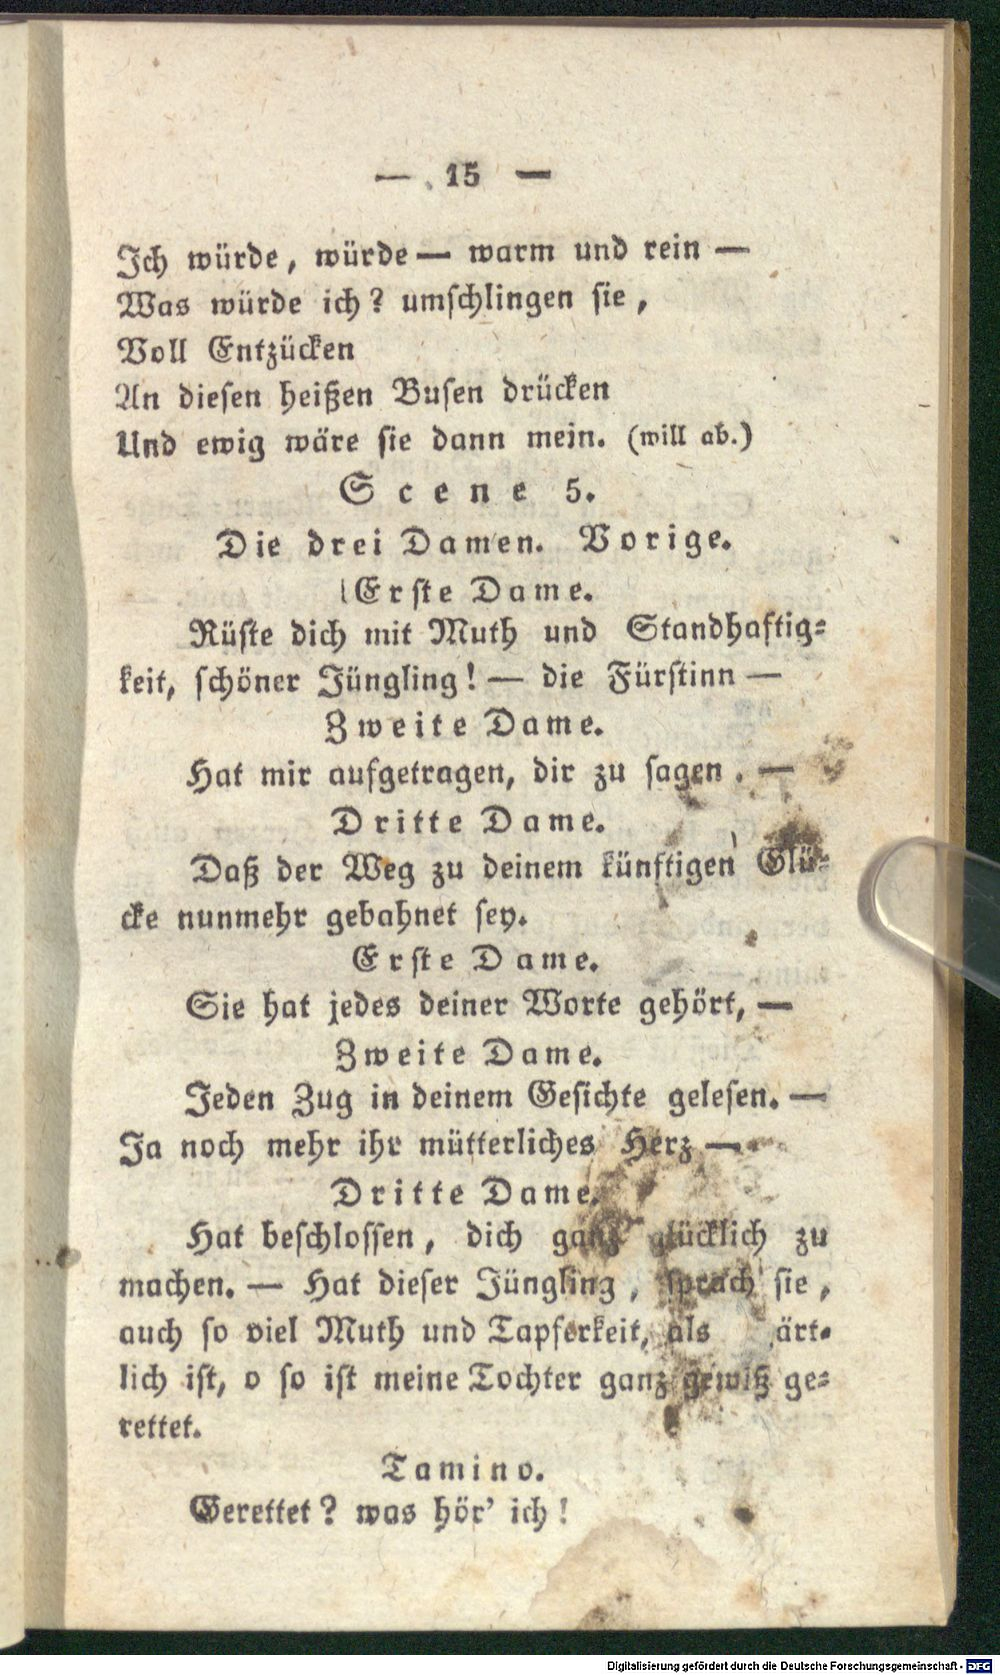 — 15 —
Ich würde, würde — warm und rein —
Was würde ich? umschlingen sie,
Voll Entzücken
An diesen heißen Busen drücken
Und ewig wäre sie dann mein. (will ab.)
Scene 5.
Die drei Damen. Vorige.
Erste Dame.
Rüste dich mit Muth und Standhaftig-
keit, schöner Jüngling! — die Fürstinn —
Zweite Dame.
Hat mir aufgetragen, dir zu sagen. —
Dritte Dame.
Daß der Weg zu deinem künftigen Glü-
cke nunmehr gebahnet sey.
Erste Dame.
Sie hat jedes deiner Worte gehört, —
Zweite Dame.
Jeden Zug in deinem Gesichte gelesen. —
Ja noch mehr ihr mütterliches Herz —
Dritte Dame.
Hat beschlossen, dich ganz glücklich zu
machen. — Hat dieser Jüngling, sprach sie,
auch so viel Muth und Tapferkeit, als ärt-
lich ist, o so ist meine Tochter ganz gewiß ge-
rettet.
Tamino.
Gerettet? was hör' ich!
Digitalisierung gefördert durch die Deutsche Forschungsgemeinschaft - DFG